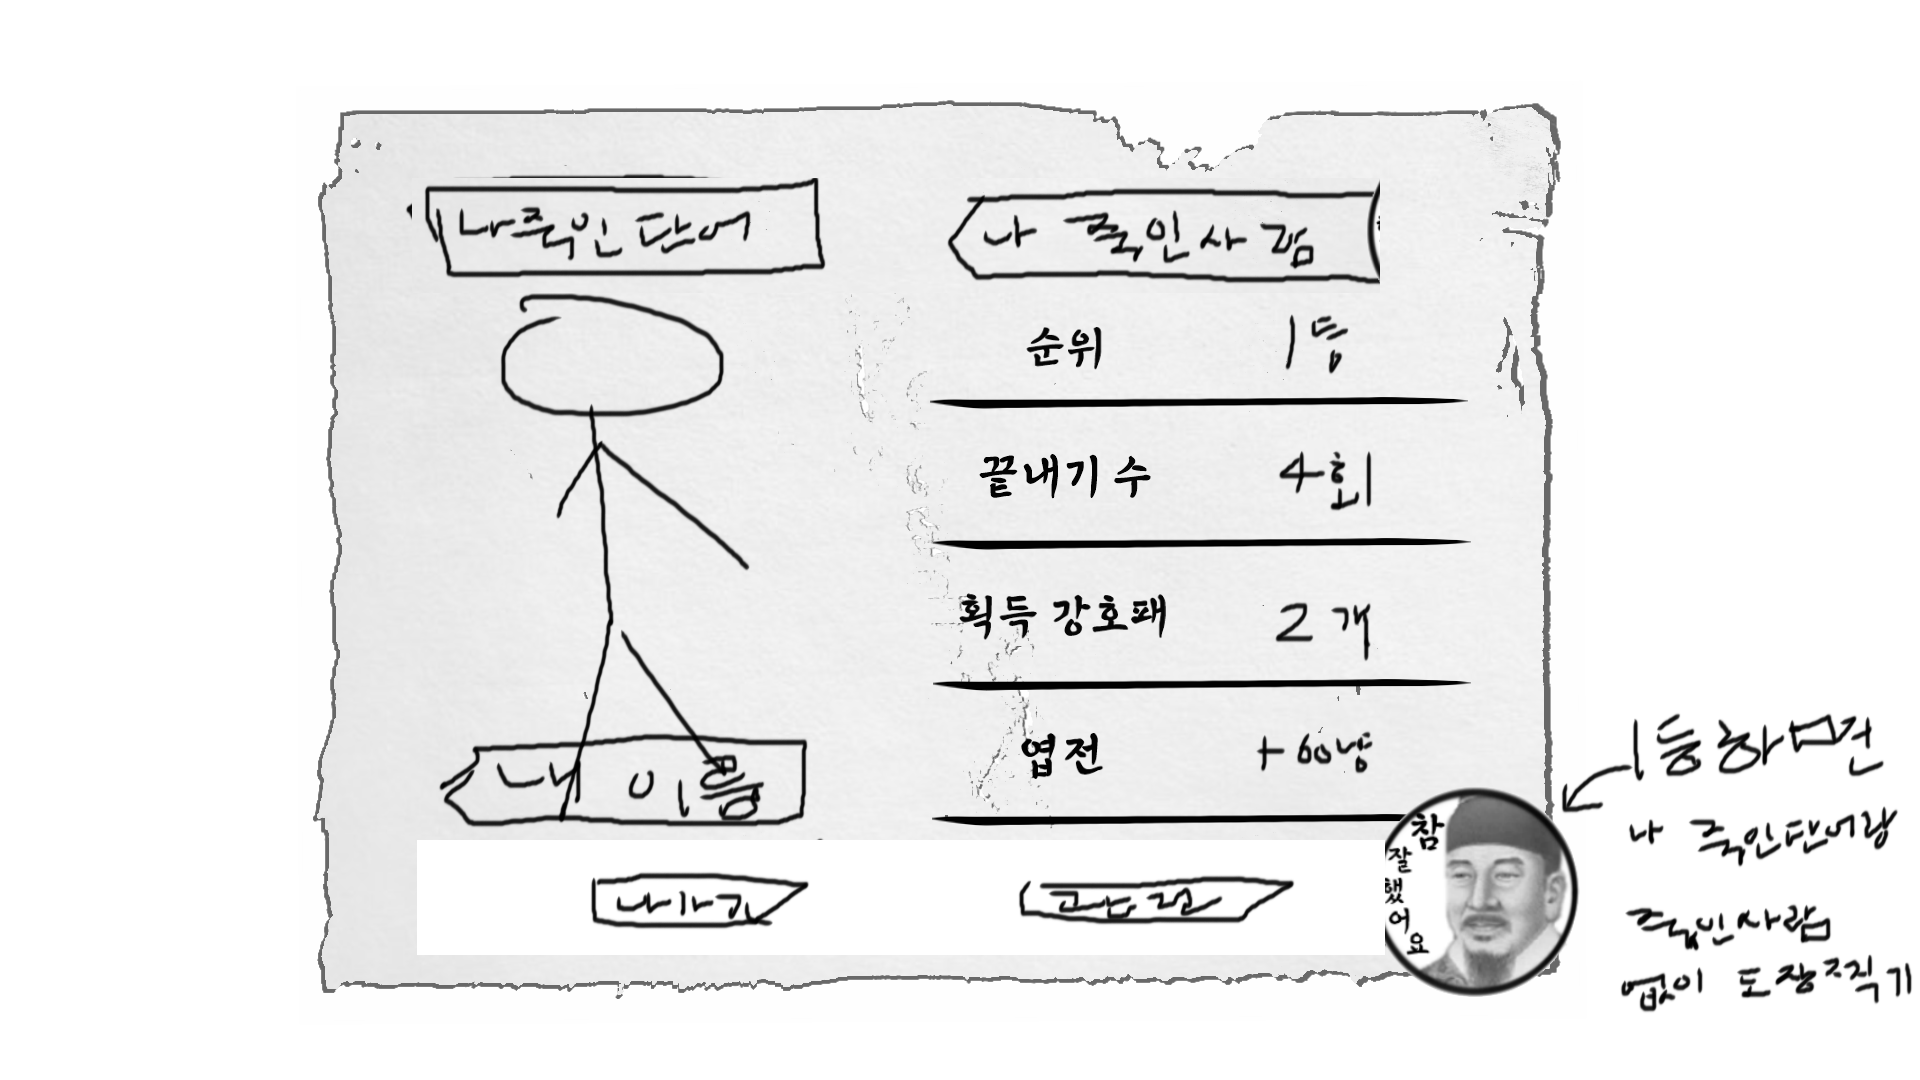 나죽인 단어
나 죽인사람
순위 1등
끝내기 수 4회
획득 강호패 2개
엽전 +60냥
내 이름
나가기
관전
참
잘
했
어
요
1등하면
나 죽인단어랑
죽인사람
없이 도장직기